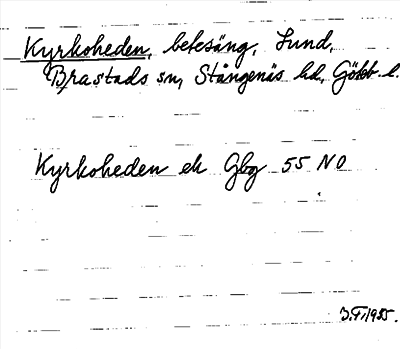 Kyrkoheden, betesäng, Lund,
Brastads sn, Stångenäs hd, Göteb. l.
Kyrkoheden ek Gbg 55 NO
1955.